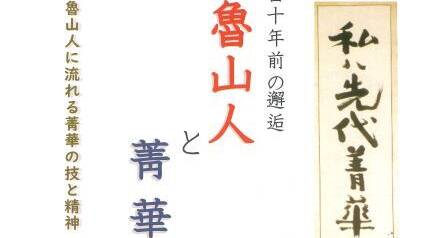 私ハ先代菁華
十年前の邂逅
魯山人
と
菁華
魯山人に流れる菁華の技と精神